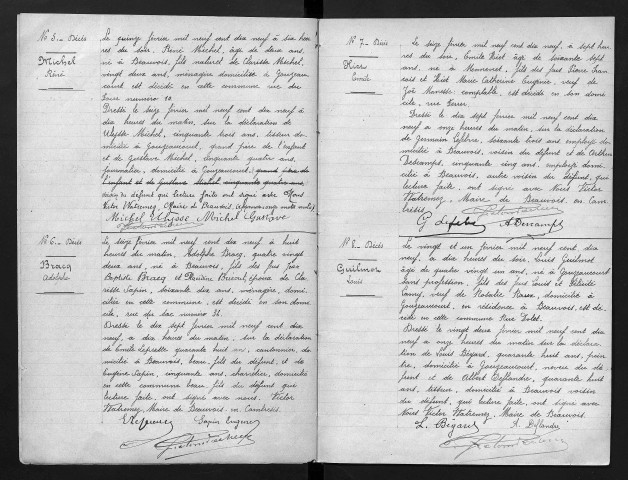 N° 5 - Décès
Michel
René
Le quinze février mil neuf cent dix neuf à six heu
res du soir, René Michel, âgé de deux ans,
né à Beauvois, fils naturel de Clarisse Michel,
vingt deux ans, ménagère domiciliée à Gouzeau
court est décédé en cette commune rue du
numéro 10
Dressé le seize février mil neuf cent dix neuf à
dix heures du matin, sur la déclaration de
Ulysse Michel, cinquante trois ans, tisseur do
micilié à Gouzeaucourt, grand père de l'enfant
et de Gustave Michel, cinquante quatre ans,
journalier, domicilié à Gouzeaucourt, grand père de
l'enfant et de Gustave Michel cinquante quatre ans,
voisin du défunt qui lecture faite ont signé avec Nous
Victor Watremez, Maire de Beauvois
Michel Ulysse Michel Gustave
N° 6 - Décès
Bracq
Adolphe
Le seize février mil neuf cent dix neuf à huit
heures du matin, Adolphe Bracq, quatre vingt
deux ans, né à Beauvois, fils des feu Jean
Baptiste Bracq et Brunel, époux de Cla
risse Sapin, soixante dix ans, ménagère, domi
ciliée en cette commune, est décédé en son domi
cile, rue du bac numéro 36.
Dressé le dix sept février mil neuf cent dix
neuf, à dix heures du matin, sur la déclaration
de Emile quarante huit ans, cantonnier, do
micilié à Beauvois, beau fils du défunt, et de
Eugène Sapin, cinquante ans, charretier, domicilié
en cette commune beau fils du défunt qui
lecture faite, ont signé avec nous. Victor
Watremez, Maire de Beauvois en Cambrésis
Sapin Eugène
N° 7 - Décès
Emile
Le seize février mil neuf cent dix neuf, à sept heu
res du soir, Emile âgé de soixante sept
ans, né à fils des feu Pierre Fran
çois et Marie Catherine Eugénie, veuf de
Zoé comptable, est décédé en son domi
cile, rue
Dressé le dix sept février mil neuf cent dix
neuf à onze heures du matin, sur la déclaration
de Germain Lefebvre, soixante trois ans employé do
micilié à Beauvois, voisin du défunt et de Arthur
Descamps, cinquante cinq ans, employé domi
cilié à Beauvois, autre voisin du défunt, qui
lecture faite, ont signé avec Nous Victor
Watremez, Maire de Beauvois en Cam
brésis
G Lefebvre A Descamps
N° 8 - Décès
Guilmot
Louis
Le vingt et un février mil neuf cent dix
neuf, à dix heures du soir, Louis Guilmot
âgé de quatre vingt un ans, né à Gouzeaucourt
sans profession, fils des feu Louis et Félicité
veuf de Rosalie domicilié à
Gouzeaucourt, en résidence à Beauvois, est dé
cédé en cette commune Rue Dolet.
Dressé le vingt deux février mil neuf cent dix
neuf à onze heures du matin sur la déclara
tion de Louis Bégard, quarante huit ans, pein
tre, domicilié à Gouzeaucourt, neveu du dé
funt et de Albert Deflandre, quarante huit
ans, tisseur, domicilié à Beauvois voisin
du défunt, qui lecture faite, ont signé avec
Nous Victor Watremez, Maire de Beauvois.
L. Bégard A. Deflandre